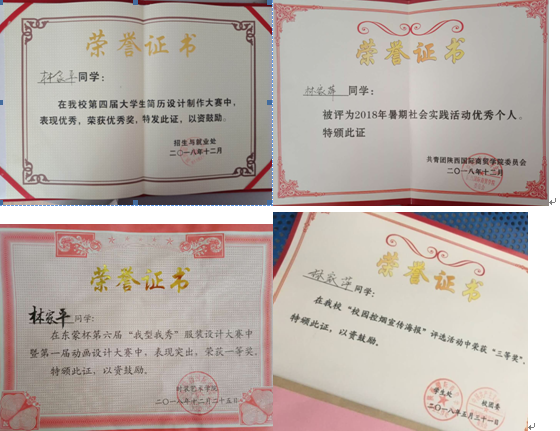 荣誉证书
林家平同学:
在我校第四届大学生简历设计制作大赛中,
表现优秀,荣获优秀奖,特发此证,以资鼓励。
招生与就业处
二〇一八年十二月
荣誉证书
林家萍同学:
被评为2018年暑期社会实践活动优秀个人。
特颁此证
共青团陕西国际商贸学院委员会
二〇一八年十二月
荣誉证书
林家平同学:
在东蒙杯第六届“我型我秀”服装设计大赛中
暨第一届动画设计大赛中,表现突出,荣获一等奖,
特颁此证,以资鼓励。
时装艺术学院
二〇一八年十二月二十五日
荣誉证书
林家萍同学:
在我校“校园控烟宣传海报”评选活动中荣获“三等奖”,
特颁此证,以资鼓励。
学生处 校团委
二〇一八年五月三十一日